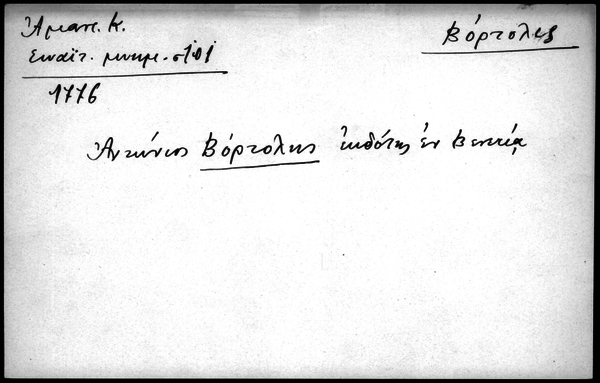 Ἀμαντ. Κ.
Βόρτολης
Σιναϊτ. μνημ. σ 101
1776
Ἀντώνιος Βόρτολης ἐκδότης ἐν Βενετίᾳ